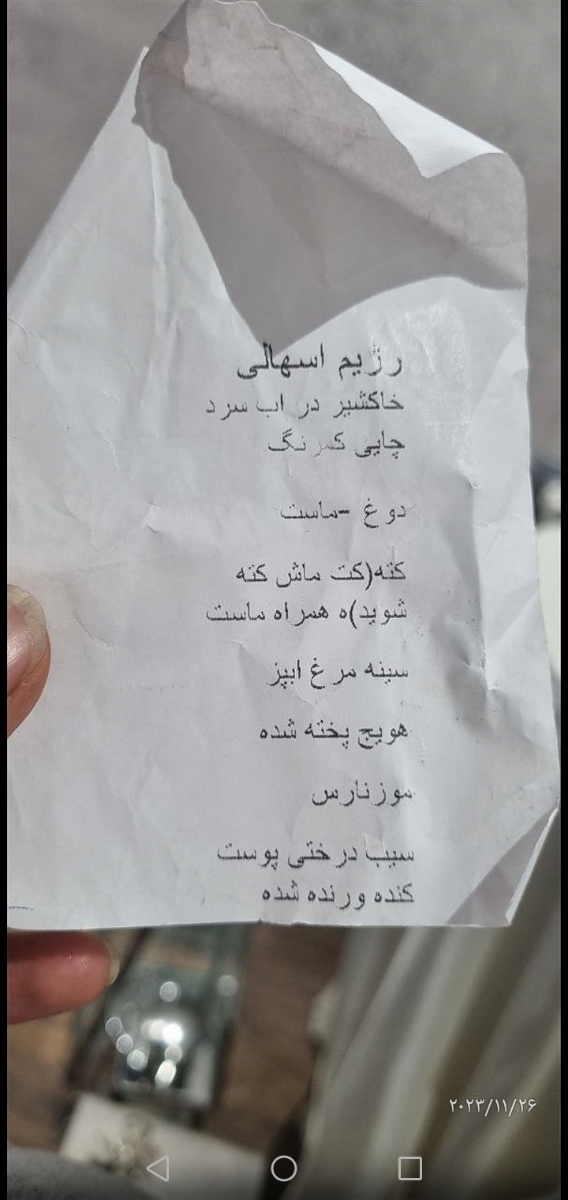 رژیم اسهالی
خاکشیر در اب سرد
چایی کمرنگ
دوغ -ماست
کته(کت ماش کته
شوید)ه همراه ماست
سینه مرغ ابپز
هویج پخته شده
موزنارس
سیب درختی پوست
کنده ورنده شده
۲۰۲۳/۱۱/۲۶